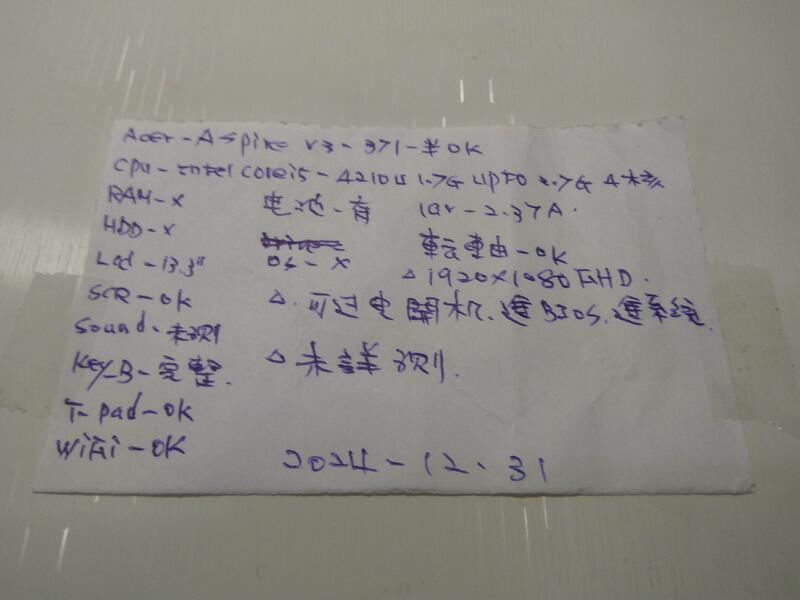 Acer-Aspire V3-371-半OK
CPU-Intel Corei5-4210U 1.7G upto 2.7G 4核
RAM-X 电池-有 19V-2.37A.
HDD-X
OS-X 転軸-OK
Lcd-13.3" △1920x1080 FHD.
SCR-OK △.可过电開机.進BIOS.進系統.
Sound-未測
Key_B-完整. △未詳測.
T-pad-OK
WiFi-OK
2024-12.31